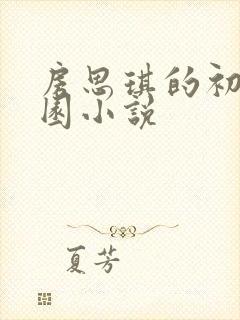 房思琪的初
園小説
夏芳